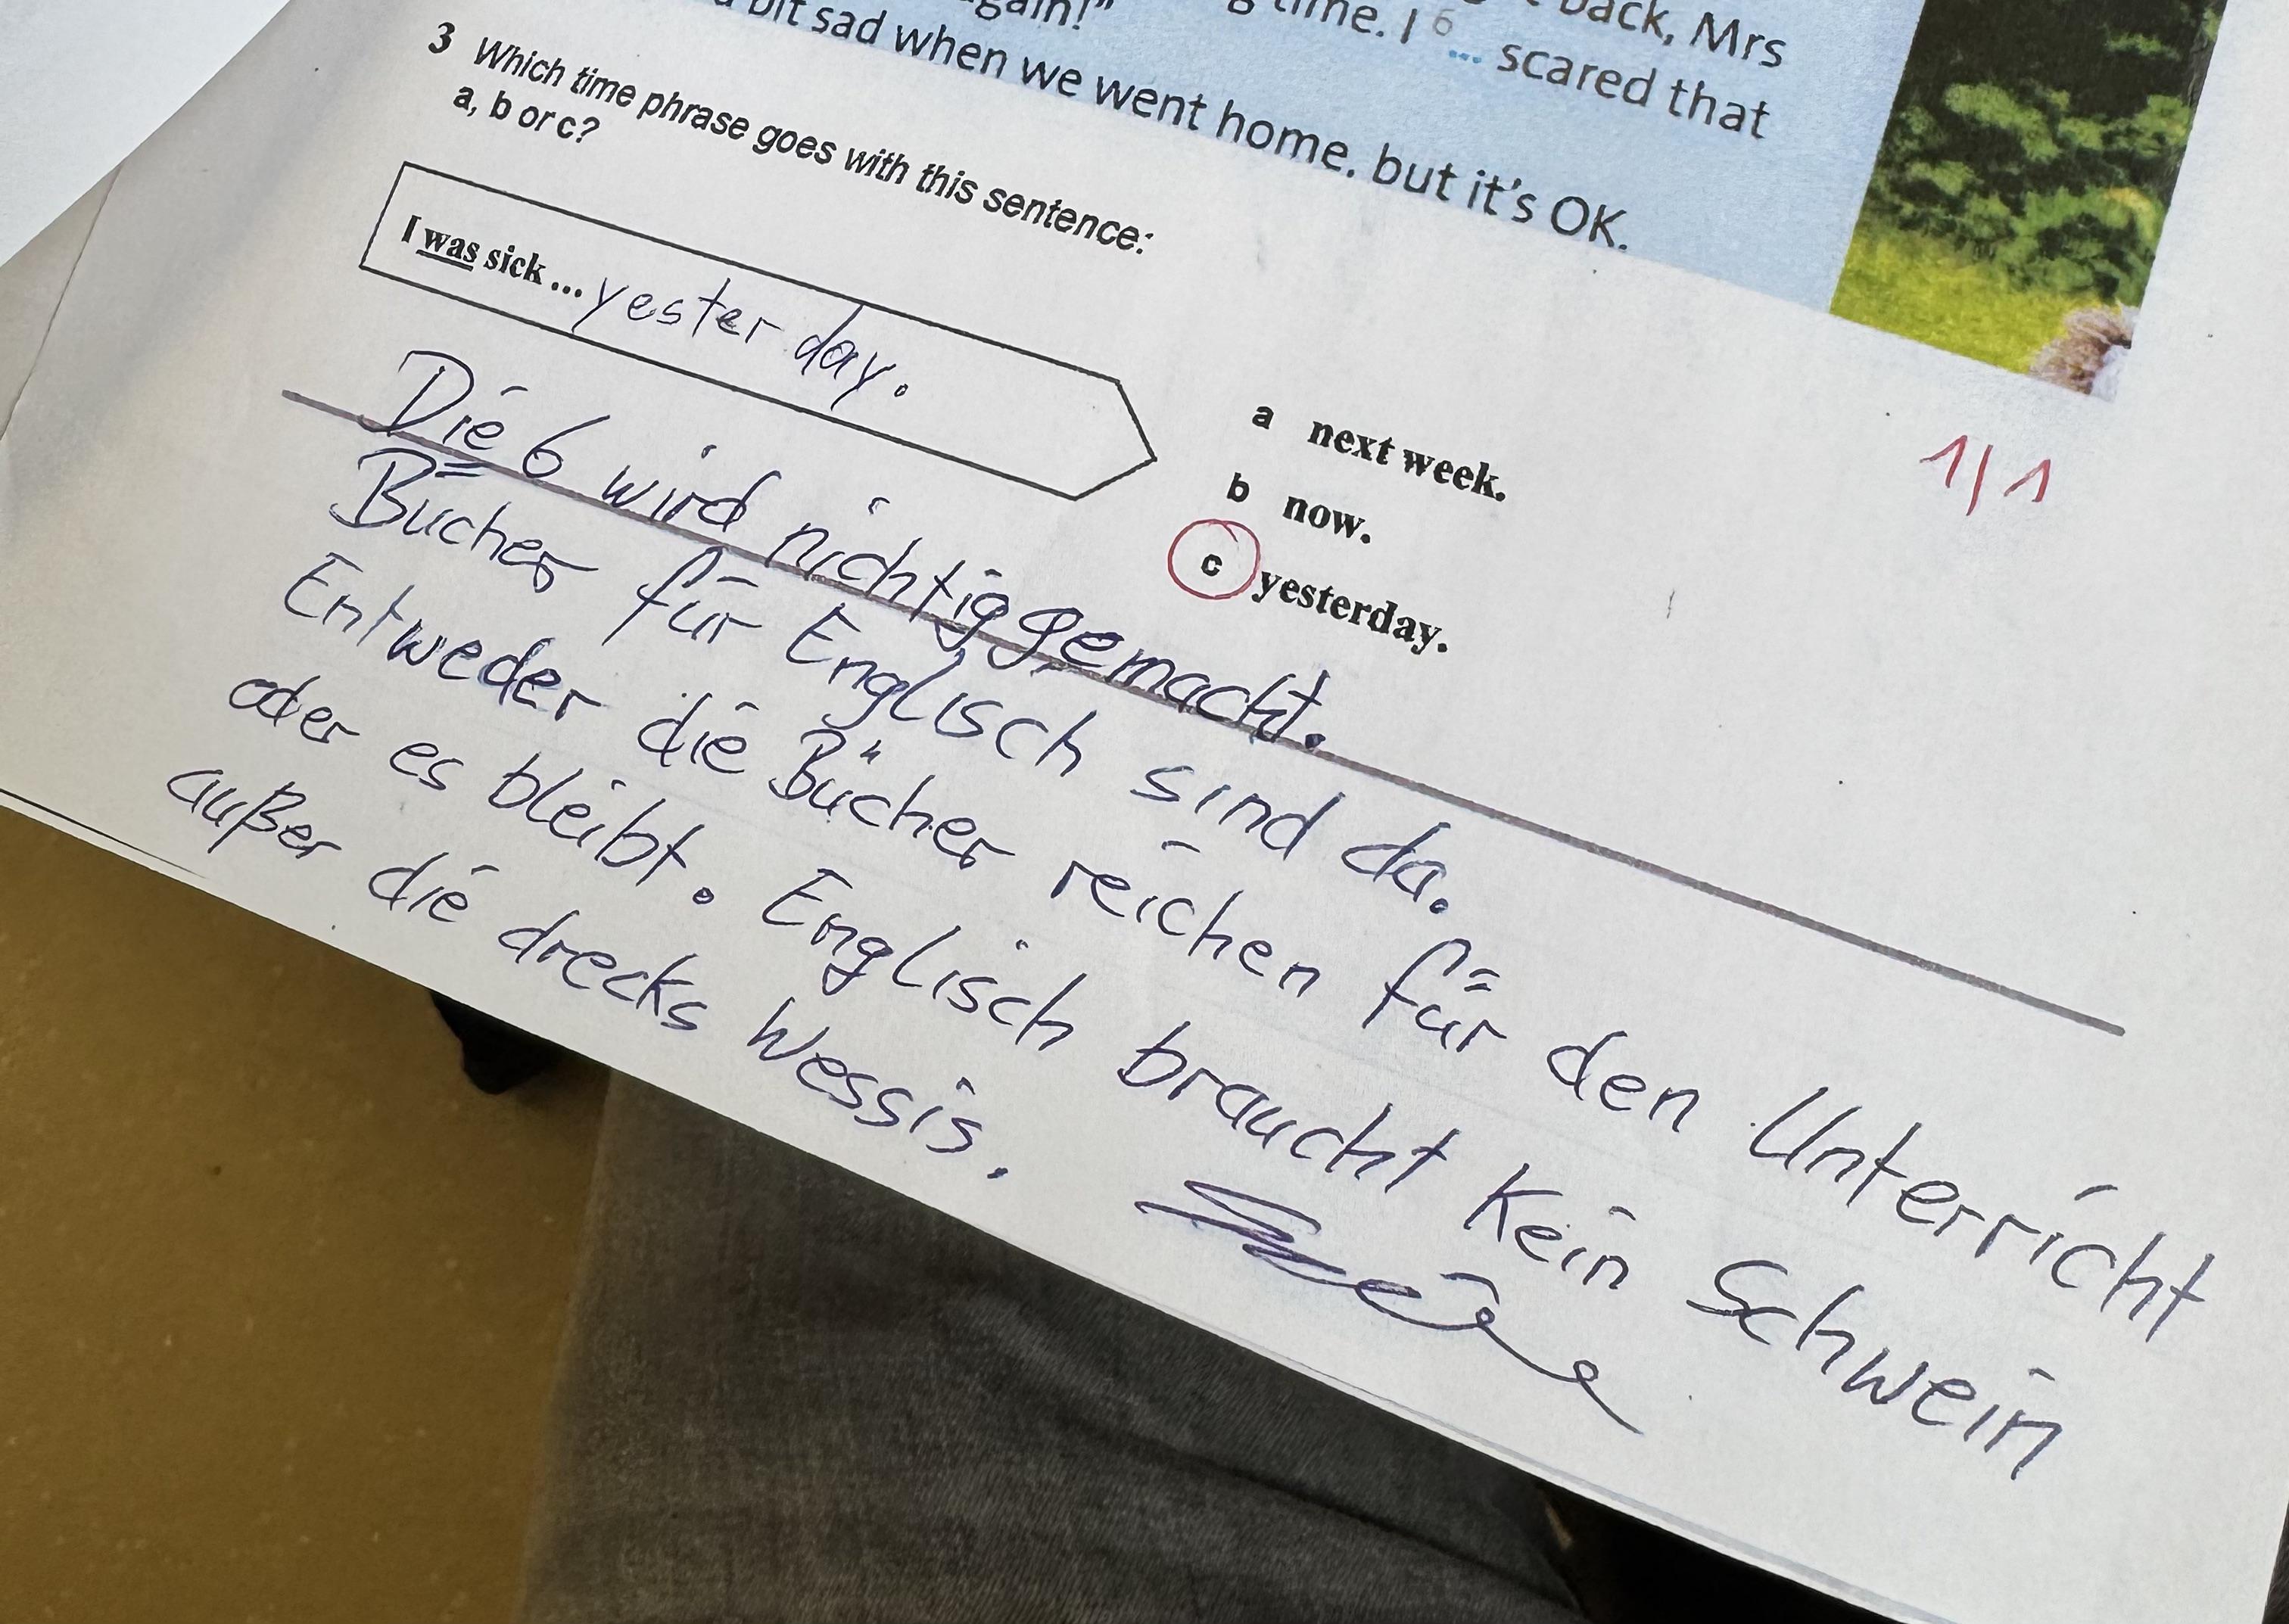 again!" g time. I 6... scared that
back, Mrs
bit sad when we went home. but it's OK.
3 Which time phrase goes with this sentence:
a, b or c?
I was sick ... yester day.
a next week.
b now.
c yesterday.
1/1
Die 6 wird nichtig gemacht.
Bücher für Englisch sind da.
Entweder die Bücher reichen für den Unterricht
oder es bleibt. Englisch braucht Kein Schwein
außer die drecks Wessis.